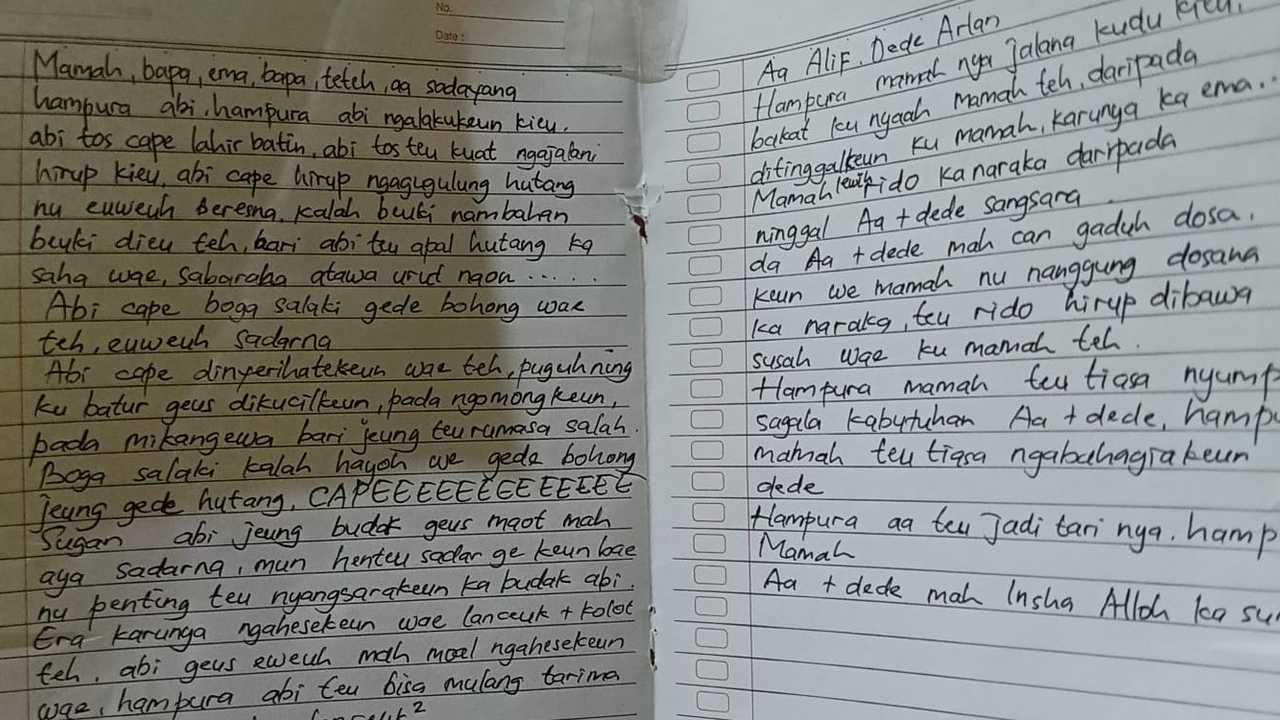 No.
Date :
Mamah, bapa, ema, bapa, teteh, aa sadayana
hampura abi, hampura abi ngalakukeun kieu.
abi tos cape lahir batin, abi tos teu kuat ngajalani
hirup kieu, abi cape hirup ngagugulung hutang
nu euweuh beresna. kalah beuki nambahan
beuki dieu teh, bari abi teu apal hutang ka
saha wae, sabaraha atawa urut naon ......
Abi cape boga salaki gede bohong wae
teh, euweuh sadarna
Abi cape dinyerihatekeun wae teh, puguhning
ku batur geus dikucilkeun, pada ngomongkeun,
pada mikangewa bari jeung teu rumasa salah.
Boga salaki kalah hayoh we gede bohong
jeung gede hutang, CAPEEEEEEEEEEEEEE
Sugan abi jeung budak geus maot mah
aya sadarna, mun henteu sadar ge keun bae
nu penting teu nyangsarakeun ka budak abi.
Era karunya ngahesekeun wae lanceuk + kolot
teh, abi geus eweuh mah moal ngahesekeun
wae, hampura abi teu bisa mulang tarima
Aa Alif, Dede Arlan
Hampura mamah nya jalana kudu kieu,
bakat ku nyaah mamah teh, daripada
ditinggalkeun ku mamah, karunya ka ema...
Mamah lewih rido ka naraka daripada
ninggal Aa + dede sangsara.
da Aa + dede mah can gaduh dosa.
Keun we mamah nu nanggung dosana
ka naraka, teu rido hirup dibawa
susah wae ku mamah teh.
Hampura mamah teu tiasa nyump
sagala kabutuhan Aa + dede, hampu
mamah teu tiasa ngabahagiakeun
dede
Hampura aa teu jadi tari nya. hamp
Mamah
Aa + dede mah Insha Alloh ka su